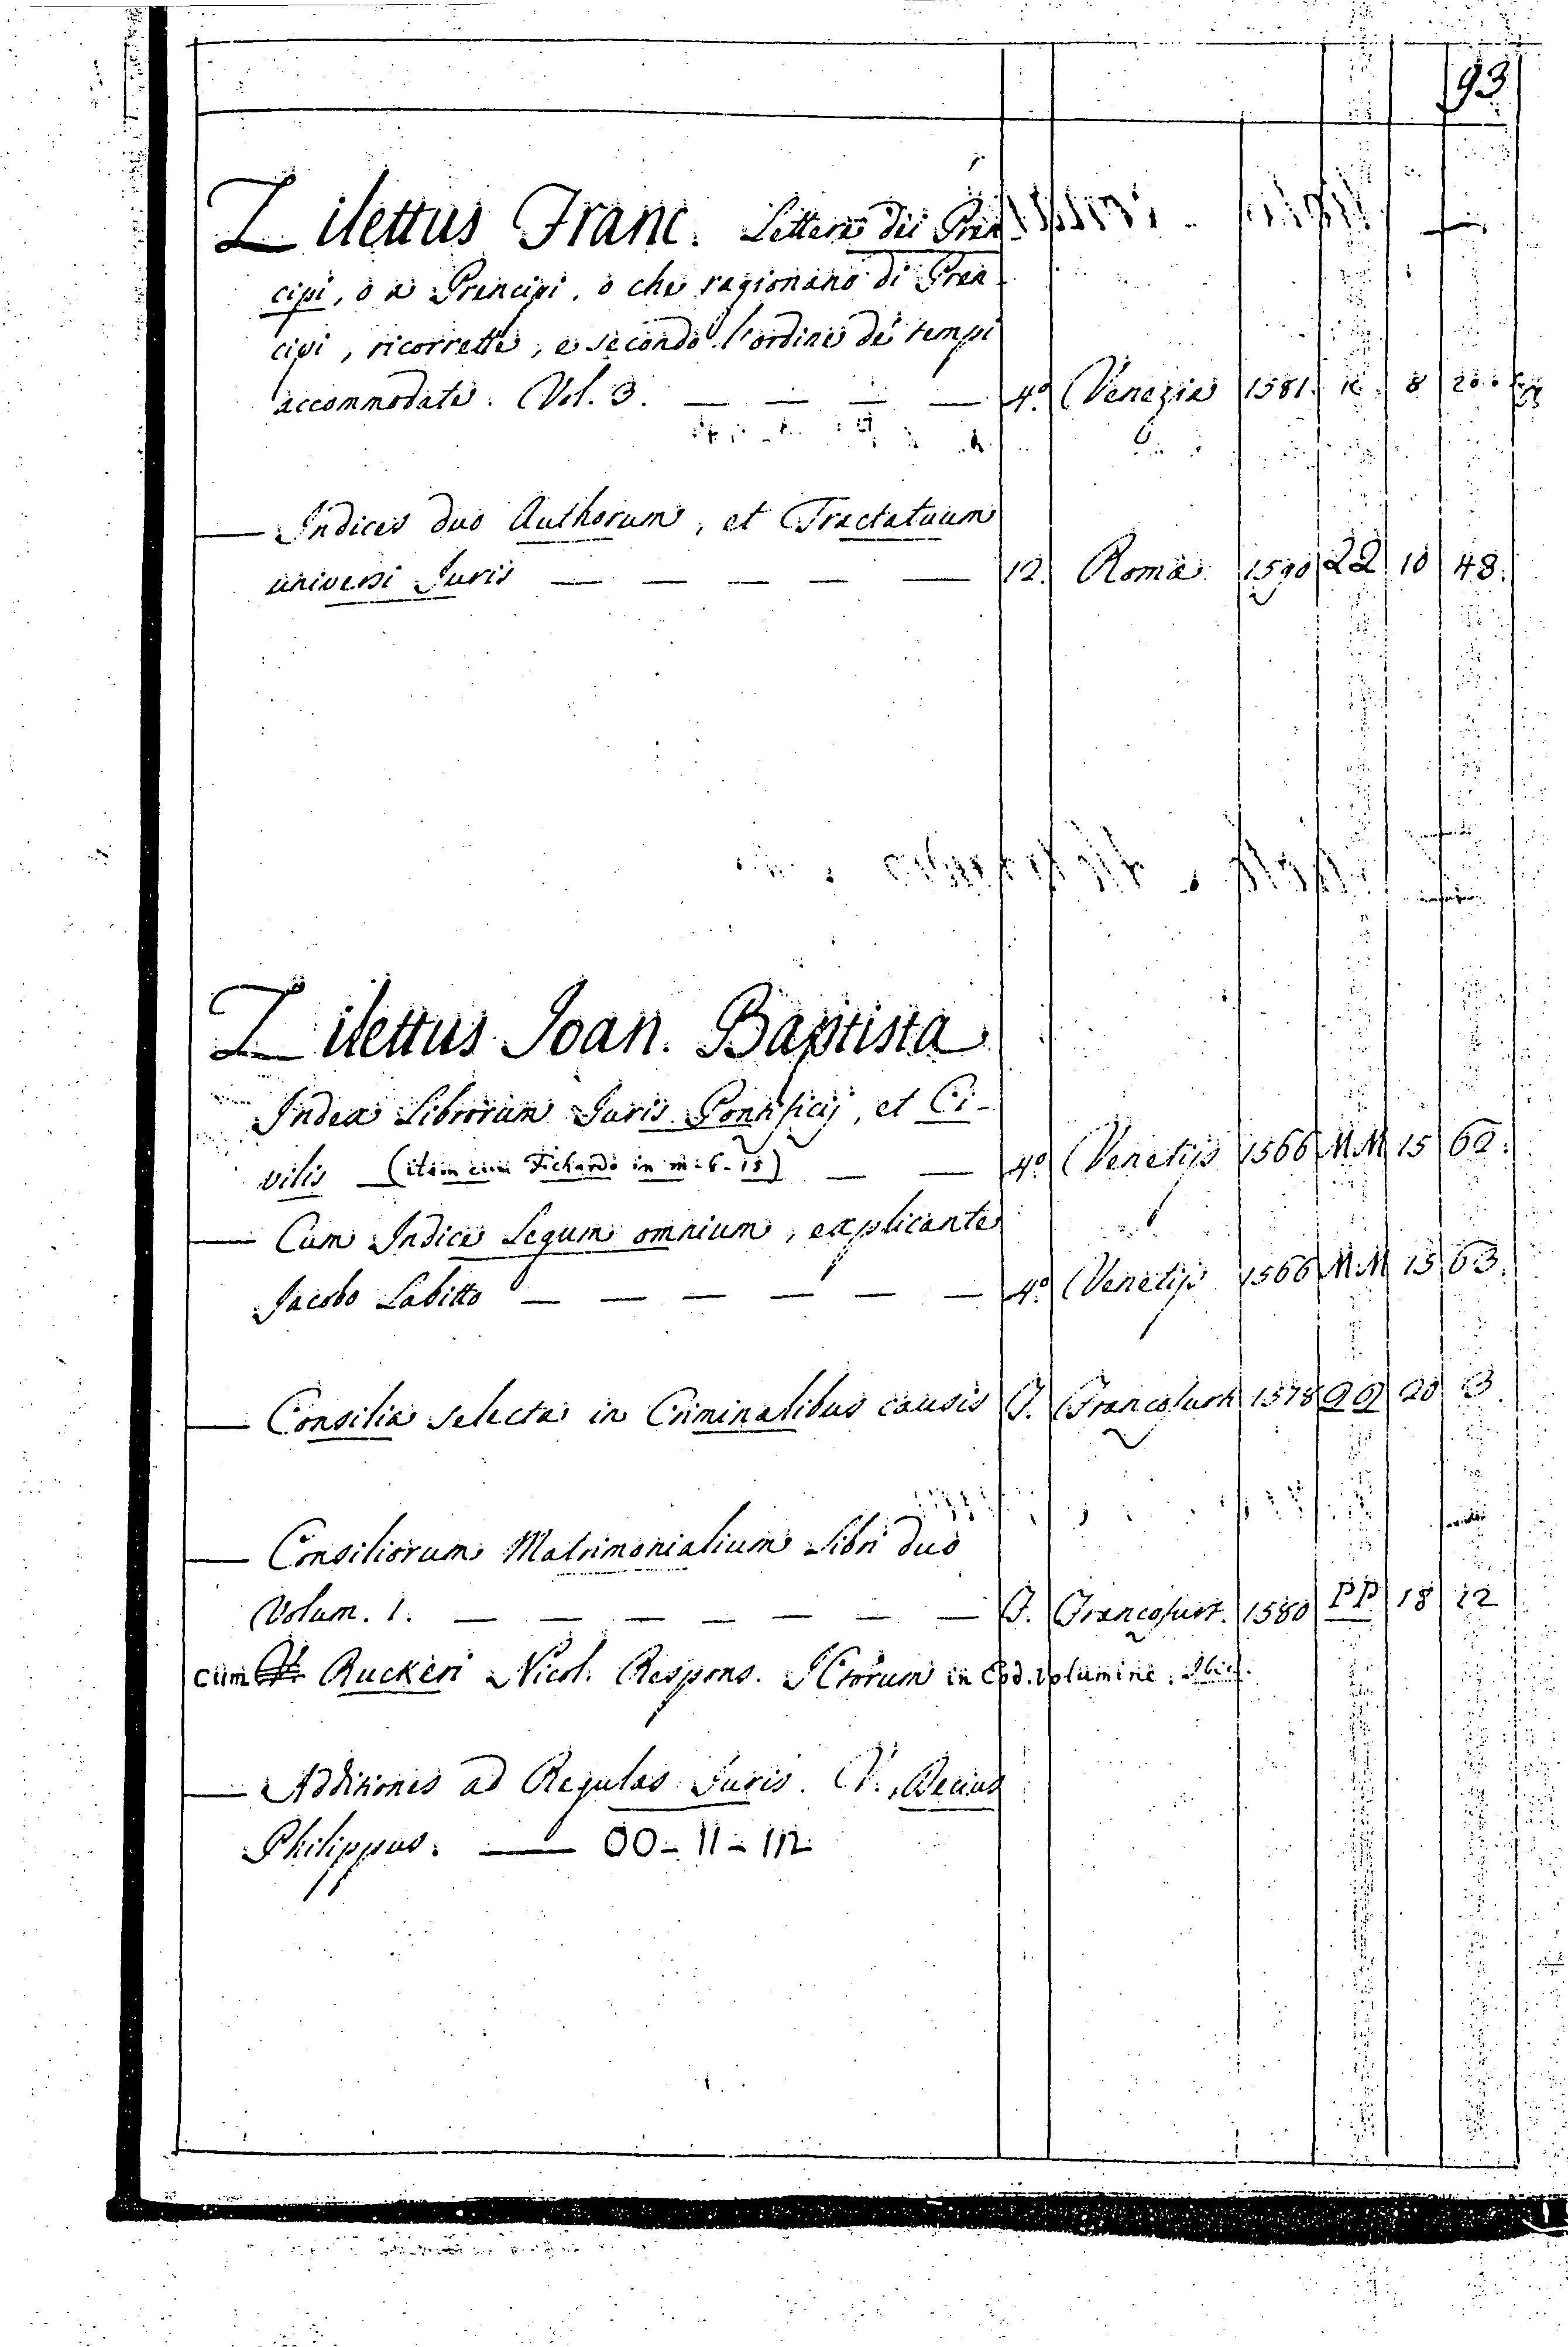 93
Zilettus Franc. Lettere dii Pren
cipi, ò a Principi, ò che ragionano di Pren
cipi, ricorrette, e secondo l'ordine de tempi
accommodate. Vol. 3. — — — — 4º Venezia 1581. K. 8 20
— Indices duo Authorum, et Tractatuum
universi Juris — — — — — 12. Roma 1590 22 10 48.
Zilettus Joan. Baptista
Index Librorum Juris Pontificij, et Ci-
vilis (item cum Fichardo in m-6-15) — — 4º Venetijs 1566 M.M 15 62.
— Cum Indice Legum omnium, explicante
Jacobo Labitto — — — — — — 4º Venetijs 1566 M.M 15 63.
— Consilia selecta in Criminalibus causis F. Francofurti 1578 QQ 20 3.
— Consiliorum Matrimonialium Libri duo
Volum. 1. — — — — — — — F. Francofurt. 1580 PP 18 12
cum Ruckeri Nicol. Respons. JCtorum in eod. volumine. Ibid.
— Additiones ad Regulas Juris. V. Decius
Philippus. — OO-11-112